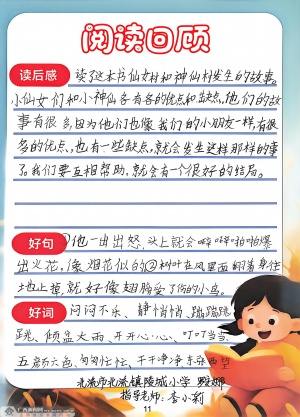 阅读回顾
读后感
读了这本书仙女村和神仙村发生的故事。
小仙女们和小神仙各有各的优点和缺点,他们的故
事有很多,因为他们也像我们的小朋友一样,有很
多的优点,也有一些缺点,就会发生这样那样的事
了,我们要互相帮助,就会有一个很好的结局。
好句
①他一出出怒,头上就会噼噼啪啪爆
出火花,像烟花似的②树叶在风里面翻着身往
地上掉,就好像翅膀受了伤的小鸟。
好词
闷闷不乐、静悄悄、蹦蹦跳
跳、倾盆大雨、开开心心、叮叮当当、
五颜六色、匆匆忙忙、干干净净东张西望
北流市北流镇陵城小学
指导老师:李小莉
11